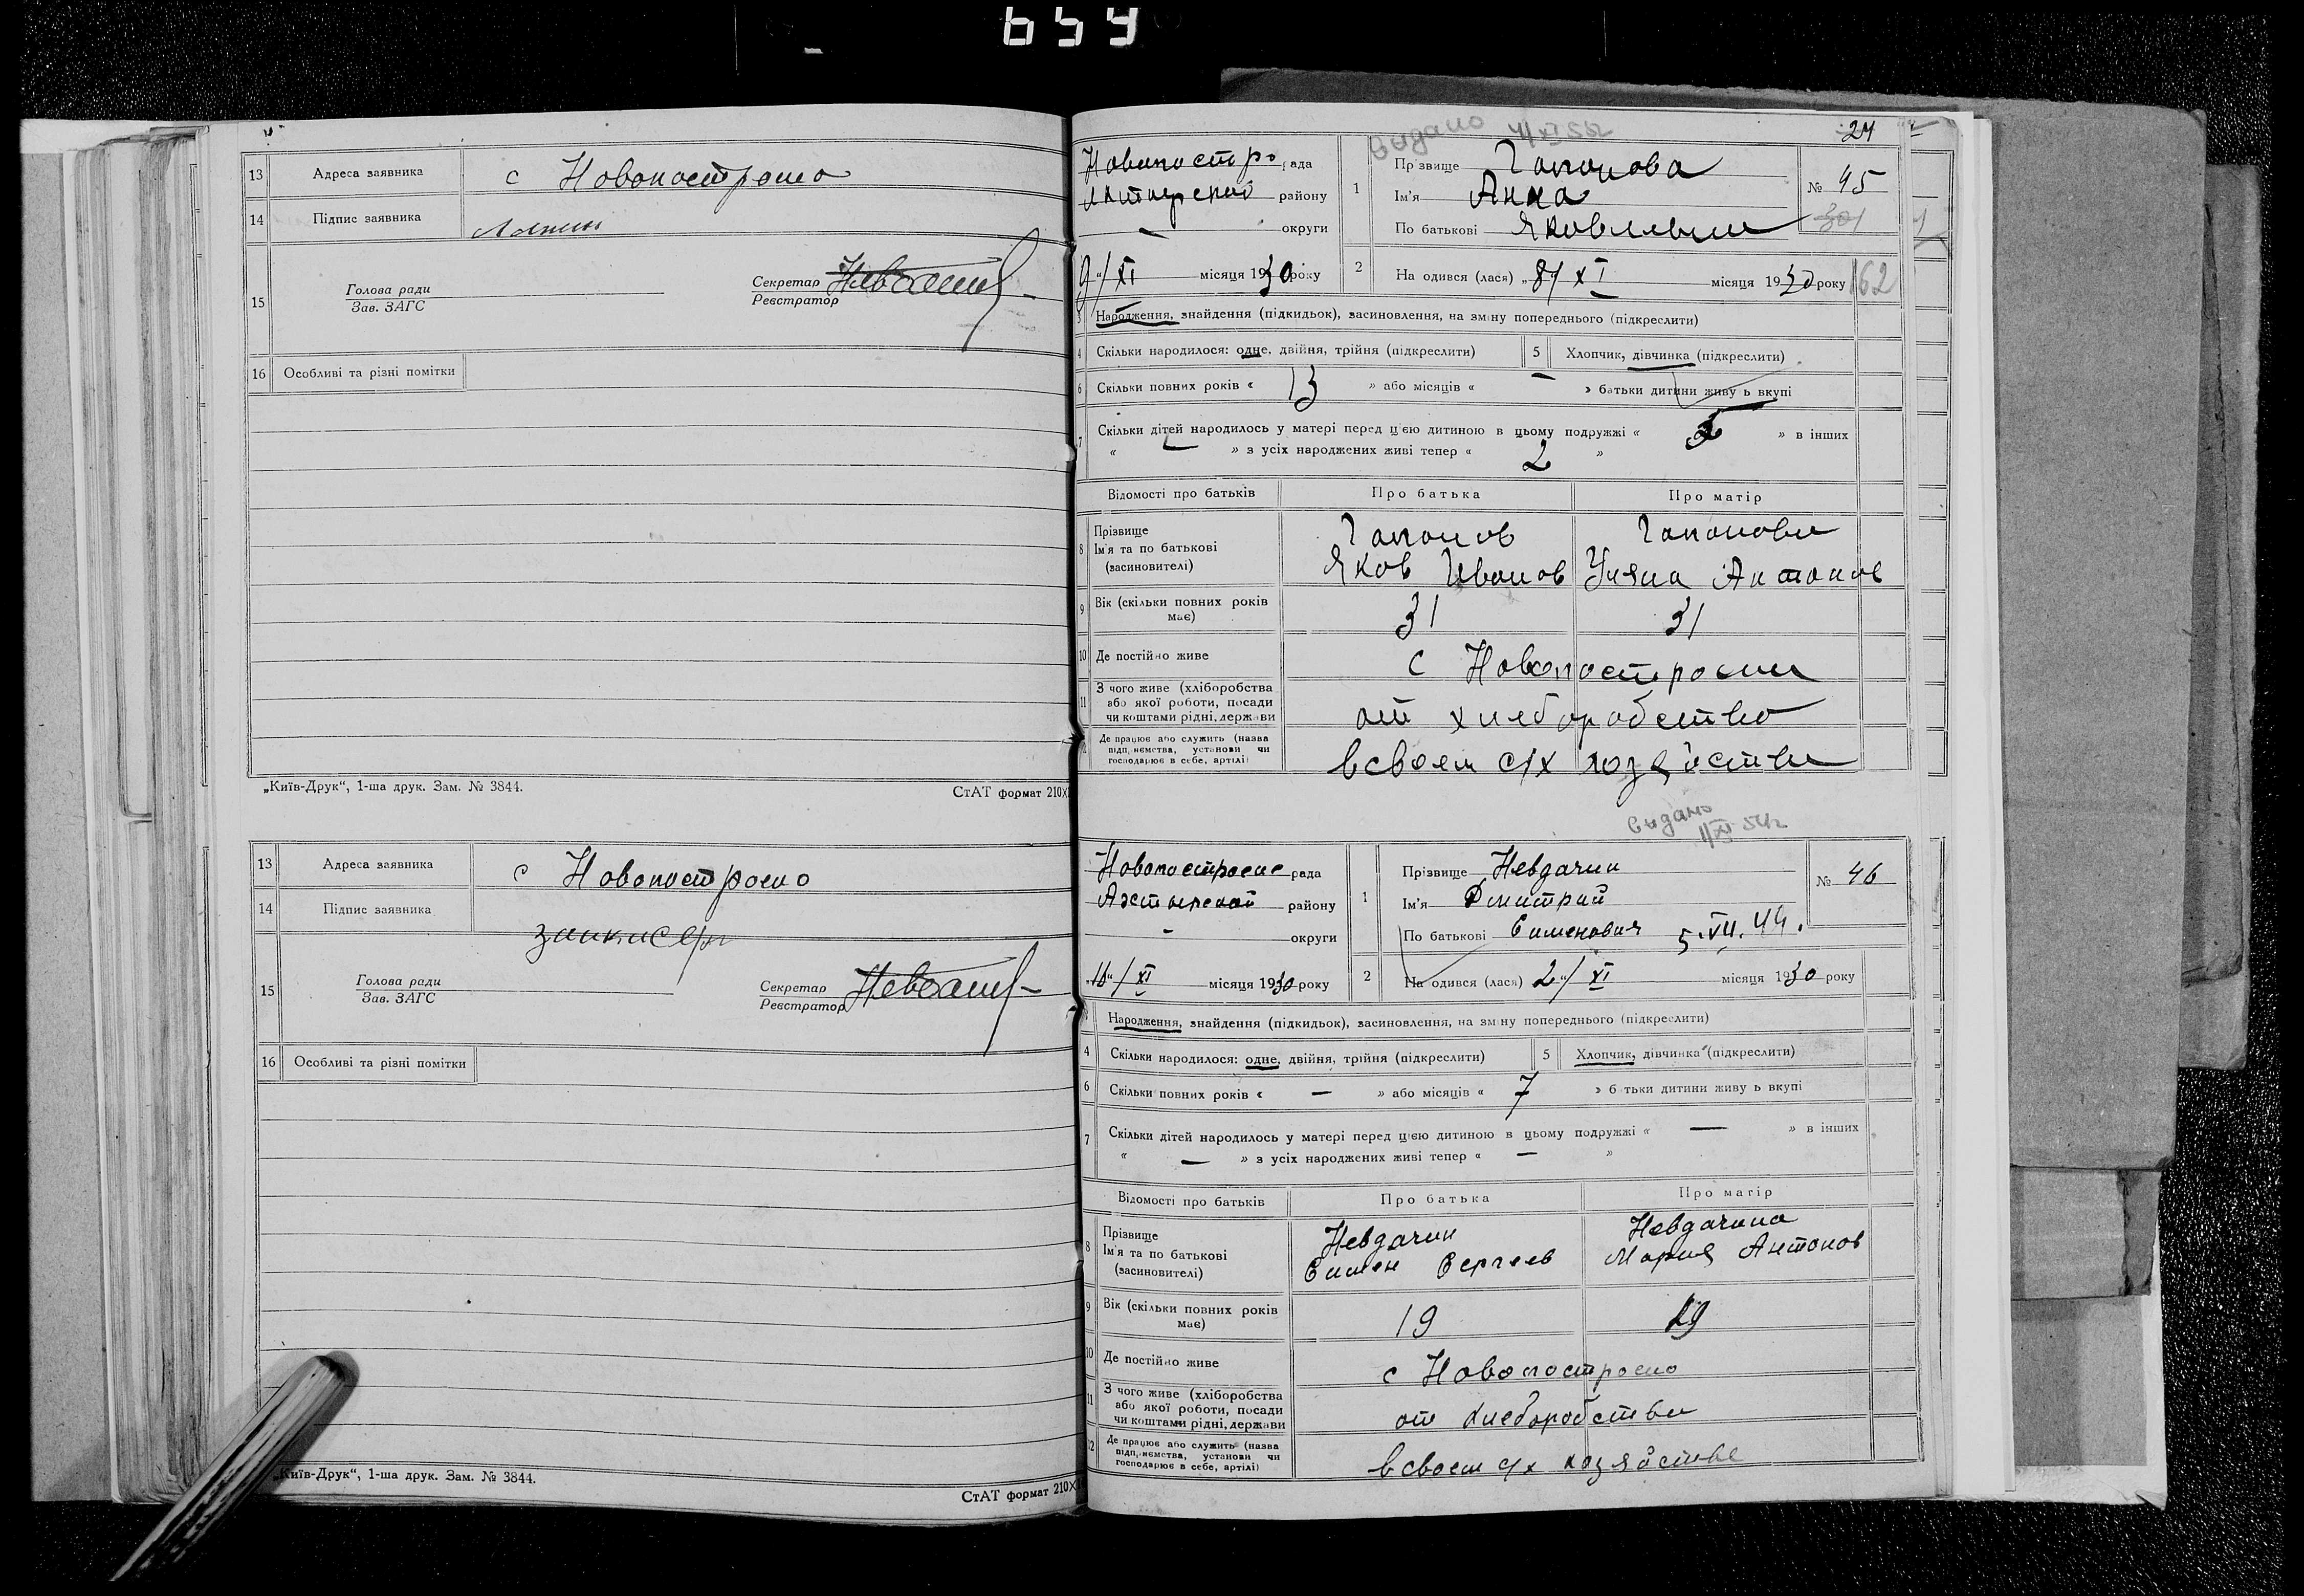 659
13 Адреса заявника с Новопостроено
14 Підпис заявника
15 Голова ради
Зав. ЗАГС
Секретар
Реєстратор
16 Особливі та різні помітки
„Київ-Друк“, 1-ша друк. Зам. № 3844.
СтАТ формат 210X
13 Адреса заявника с Новопостроено
14 Підпис заявника
15 Голова ради
Зав. ЗАГС
Секретар
Реєстратор
16 Особливі та різні помітки
„Київ-Друк“, 1-ша друк. Зам. № 3844.
СтАТ формат 210X
24
Видано
Новопостро рада
району
— округи
9/XI місяця 1930 року
1 Прізвище Гапонова
Ім'я Анна
По батькові Яковлевна
№ 45
2 На одився (лася) „8/XI місяця 1930 року
162
3 Народження, знайдення (підкидьок), засиновлення, на зміну попереднього (підкреслити)
4 Скільки народилося: одне, двійня, трійня (підкреслити) 5 Хлопчик, дівчинка (підкреслити)
6 Скільки повних років « 13 » або місяців « — » батьки дитини живу ь вкупі
7 Скільки дітей народилось у матері перед цією дитиною в цьому подружжі « » в інших
« — » з усіх народжених живі тепер « 2 »
Відомості про батьків Про батька Про матір
8 Прізвище Гапонов Гапонова
Ім'я та по батькові Яков Иванов Уляна Антонов
(засновителі)
9 Вік (скільки повних років має) 31 31
10 Де постійно живе с Новопостроени
11 З чого живе (хліборобства
або якої роботи, посади от хлеборобство
чи коштами рідні, держави
12 Де працює або служить (назва
підприємства, установи чи в своем с/х хозяйстве
господарює в себе, артілі)
Видано
11 XI 54г
Новопостроене рада
Ахтырской району
- округи
„10“/XI місяця 1930 року
1 Прізвище Невдачин
Ім'я Дмитрий
По батькові Сименович 5.VII.44.
№ 46
2 На одився (лася) 2“/XI місяця 1930 року
3 Народження, знайдення (підкидьок), засиновлення, на зміну попереднього (підкреслити)
4 Скільки народилося: одне, двійня, трійня (підкреслити) 5 Хлопчик, дівчинка (підкреслити)
6 Скільки повних років « — » або місяців « 7 » б тьки дитини живу ь вкупі
7 Скільки дітей народилось у матері перед цією дитиною в цьому подружжі « — » в інших
« — » з усіх народжених живі тепер « — »
Відомості про батьків Про батька Про матір
8 Прізвище Невдачин Невдачина
Ім'я та по батькові Симен Сергеев Мария Антонов
(засновителі)
9 Вік (скільки повних років має) 19 19
10 Де постійно живе с Новопостроено
11 З чого живе (хліборобства
або якої роботи, посади от хлеборобстви
чи коштами рідні, держави
12 Де працює або служить (назва
підприємства, установи чи в своем с/х хозяйстве
господарює в себе, артілі)